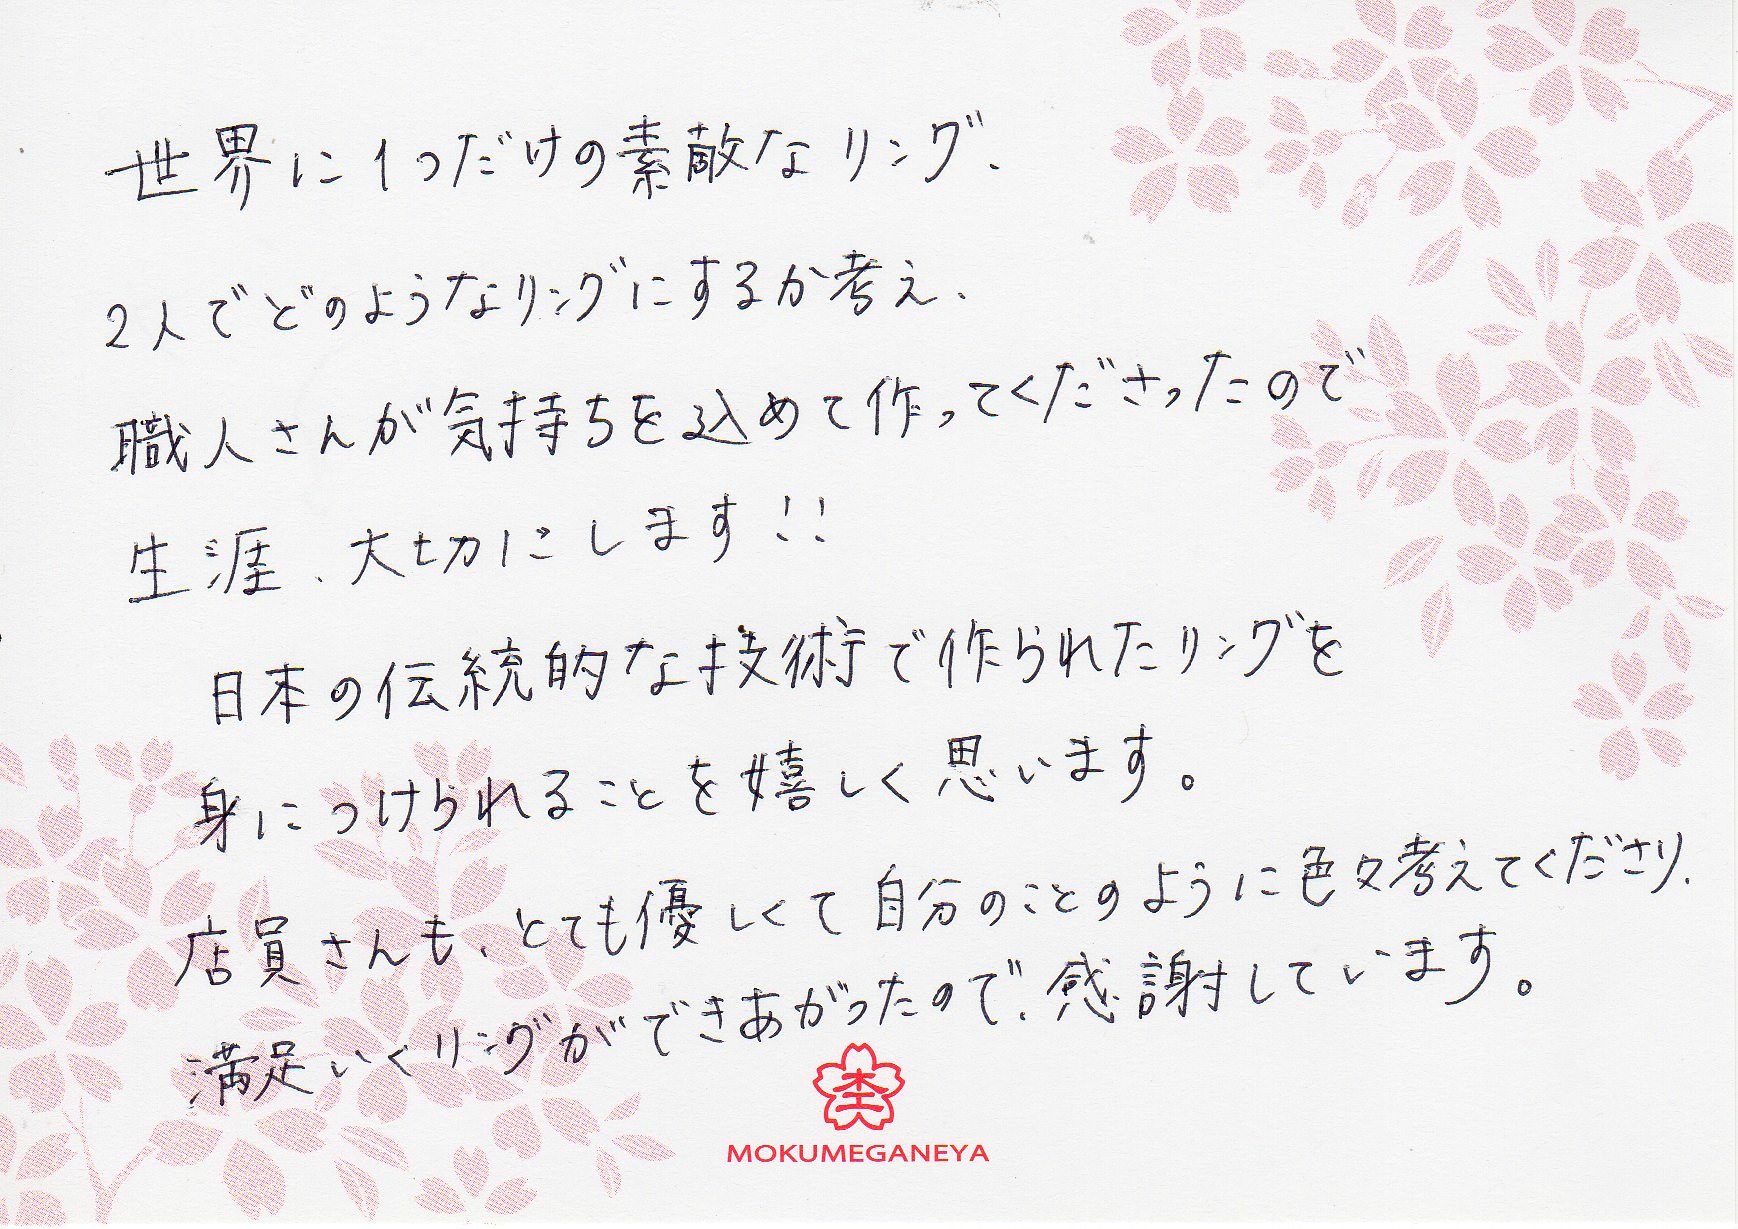 世界に1つだけの素敵なリング、
2人でどのようなリングにするか考え、
職人さんが気持ちを込めて作ってくださったので
生涯、大切にします!!
日本の伝統的な技術で作られたリングを
身につけられることを嬉しく思います。
店員さんも、とても優しくて自分のことのように色々考えてくださり、
満足いくリングができあがったので、感謝しています。
MOKUMEGANEYA